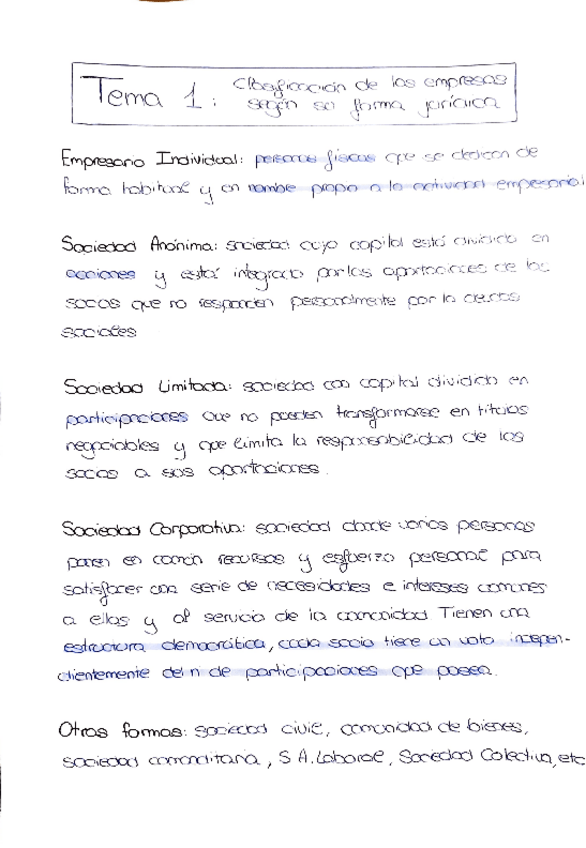 Tema 1: Clasificación de las empresas
según su forma jurídica
Empresario Individual: personas físicas que se dedican de
forma habitual y en nombre propio a la actividad empresarial
Sociedad Anónima: sociedad cuyo capital está dividido en
acciones y está integrado por las aportaciones de los
socios que no responden personalmente por la deudas
sociales
Sociedad Limitada: sociedad con capital dividido en
participaciones que no pueden transformarse en títulos
negociables y que limita la responsabilidad de los
socios a sus aportaciones.
Sociedad Corporativa: sociedad donde varias personas
ponen en común recursos y esfuerzo personal para
satisfacer una serie de necesidades e intereses comunes
a ellas y al servicio de la comunidad Tienen una
estructura democrática, cada socio tiene un voto indepen-
dientemente del nº de participaciones que posea.
Otras formas: sociedad civil, comunidad de bienes,
sociedad comanditaria, S.A. Laboral, Sociedad Colectiva, etc